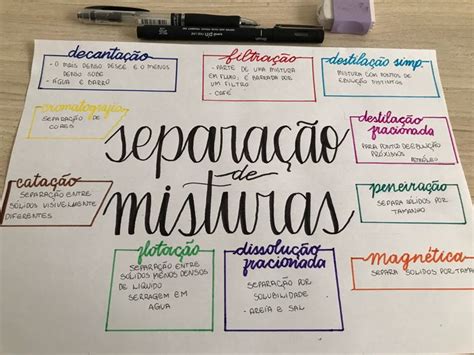 decantação
- O MAIS DENSO DESCE E O MENOS
DENSO SOBE
- ÁGUA E BARRO
filtração
- PARTE DE UMA MISTURA
EM FLUXO, É BARRADA POR
UM FILTRO
- CAFÉ
destilação simp.
MISTURA COM PONTOS DE
EBULIÇÃO DISTINTOS
cromatografia
SEPARAÇÃO DE
CORES
separação
de
misturas
destilação
fracionada
PARA PONTO DE EBULIÇÃO
PRÓXIMOS
PETRÓLEO
catação
SEPARAÇÃO ENTRE
SÓLIDOS VISIVELMENTE
DIFERENTES
peneiração
SEPARA SÓLIDOS POR
TAMANHO
flotação
SEPARAÇÃO ENTRE
SÓLIDOS MENOS DENSOS
DE LIQUIDO
SERRAGEM EM
ÁGUA
dissolução
fracionada
SEPARAÇÃO POR
SOLUBILIDADE
- AREIA E SAL
magnética
SEPARA SÓLIDOS POR TAMA